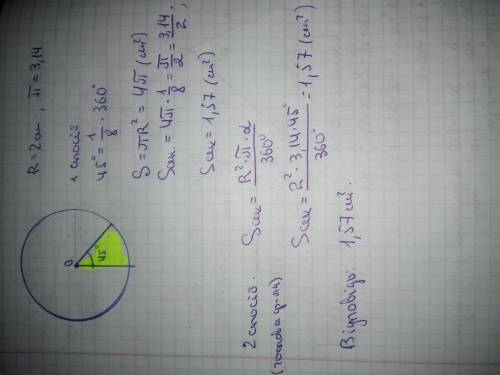 R = 2 см, π = 3,14
1 спосіб
45° = 1/8 · 360°
S = πR² = 4π (см²)
Sсек. = 4π · 1/8 = π/2 = 3,14/2,
Sсек = 1,57 (см²)
O
45°
2 спосіб. Sсек = R² · π · α / 360°
(готова ф-ла)
Sсек = 2² · 3,14 · 45° / 360° = 1,57 (см²)
Відповідь: 1,57 см².